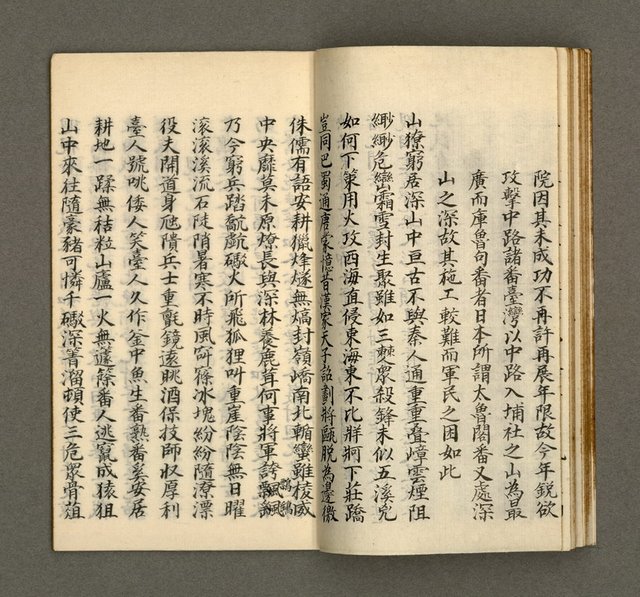 院因其未成功不再許再展年限故今年銳欲
攻擊中路諸番臺灣以中路入埔社之山為最
廣而庫魯句番者日本所謂太魯閣番又處深
山之深故其施工較難而軍民之困如此
山獠窮居深山中亘古不與秦人通重重疊嶂雲煙阻
緲緲危巒霜雪封生聚雖如三棘眾殺鋒未似五溪兇
如何下策用火攻西海直侵東海東不比牂牁下莊蹻
豈同巴蜀通唐蒙憶昔漢家天子詔劃將甌脫為邊徼
侏儒有語安耕獵烽燧無熇封嶺嶠南北輶蠻雖棱威
中央靡莫未原燎長與深林養鹿茸何事將軍誇鷂飄
乃今窮兵踏巘巇礮火所飛狐狸叫重崖陰陰無日曜
滾滾溪流石陡隋暑寒不時風窅篠冰塊紛紛隨潦漂
役夫開道身虺隤兵士重氈鏡遠眺酒保技師收厚利
臺人號咷倭人笑臺人久作釜中魚生番熟番奚安居
耕地一蹂無秸粒山廬一火無蘧篨番人逃竄成猿狙
山中來往隨豪豬可憐千礮深箐溜頓使三危眾骨菹